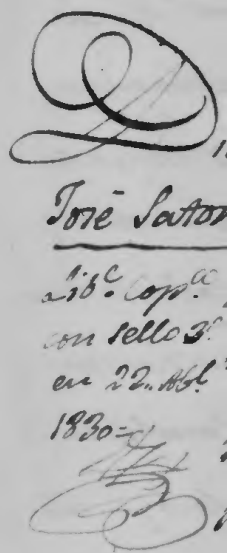 D
José Sator
Lib.ᵉ Cop.ᵃ
con sello 3º
en 22. Abl
1830=